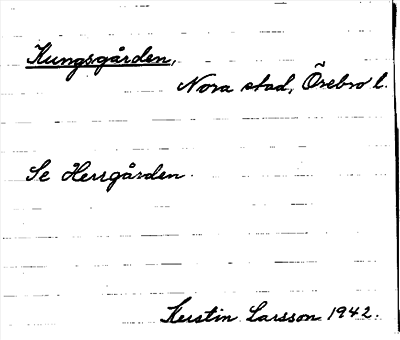 Kungsgården,
Nora stad, Örebro l.
Se Herrgården.
Kerstin Larsson 1942.